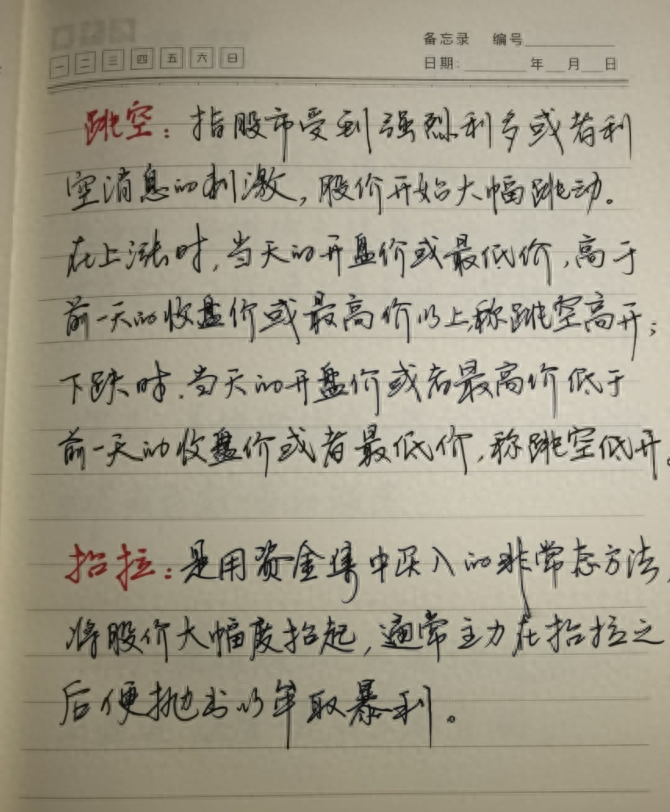 备忘录 编号
一 二 三 四 五 六 日
日期: 年 月 日
跳空：指股市受到强烈利多或者利
空消息的刺激，股价开始大幅跳动。
在上涨时，当天的开盘价或最低价，高于
前一天的收盘价或最高价以上，称跳空高开；
下跌时，当天的开盘价或者最高价低于
前一天的收盘价或者最低价，称跳空低开。
抬拉：是用资金集中买入的非常态方法，
将股价大幅度抬起，通常主力在抬拉之
后便抛出以牟取暴利。